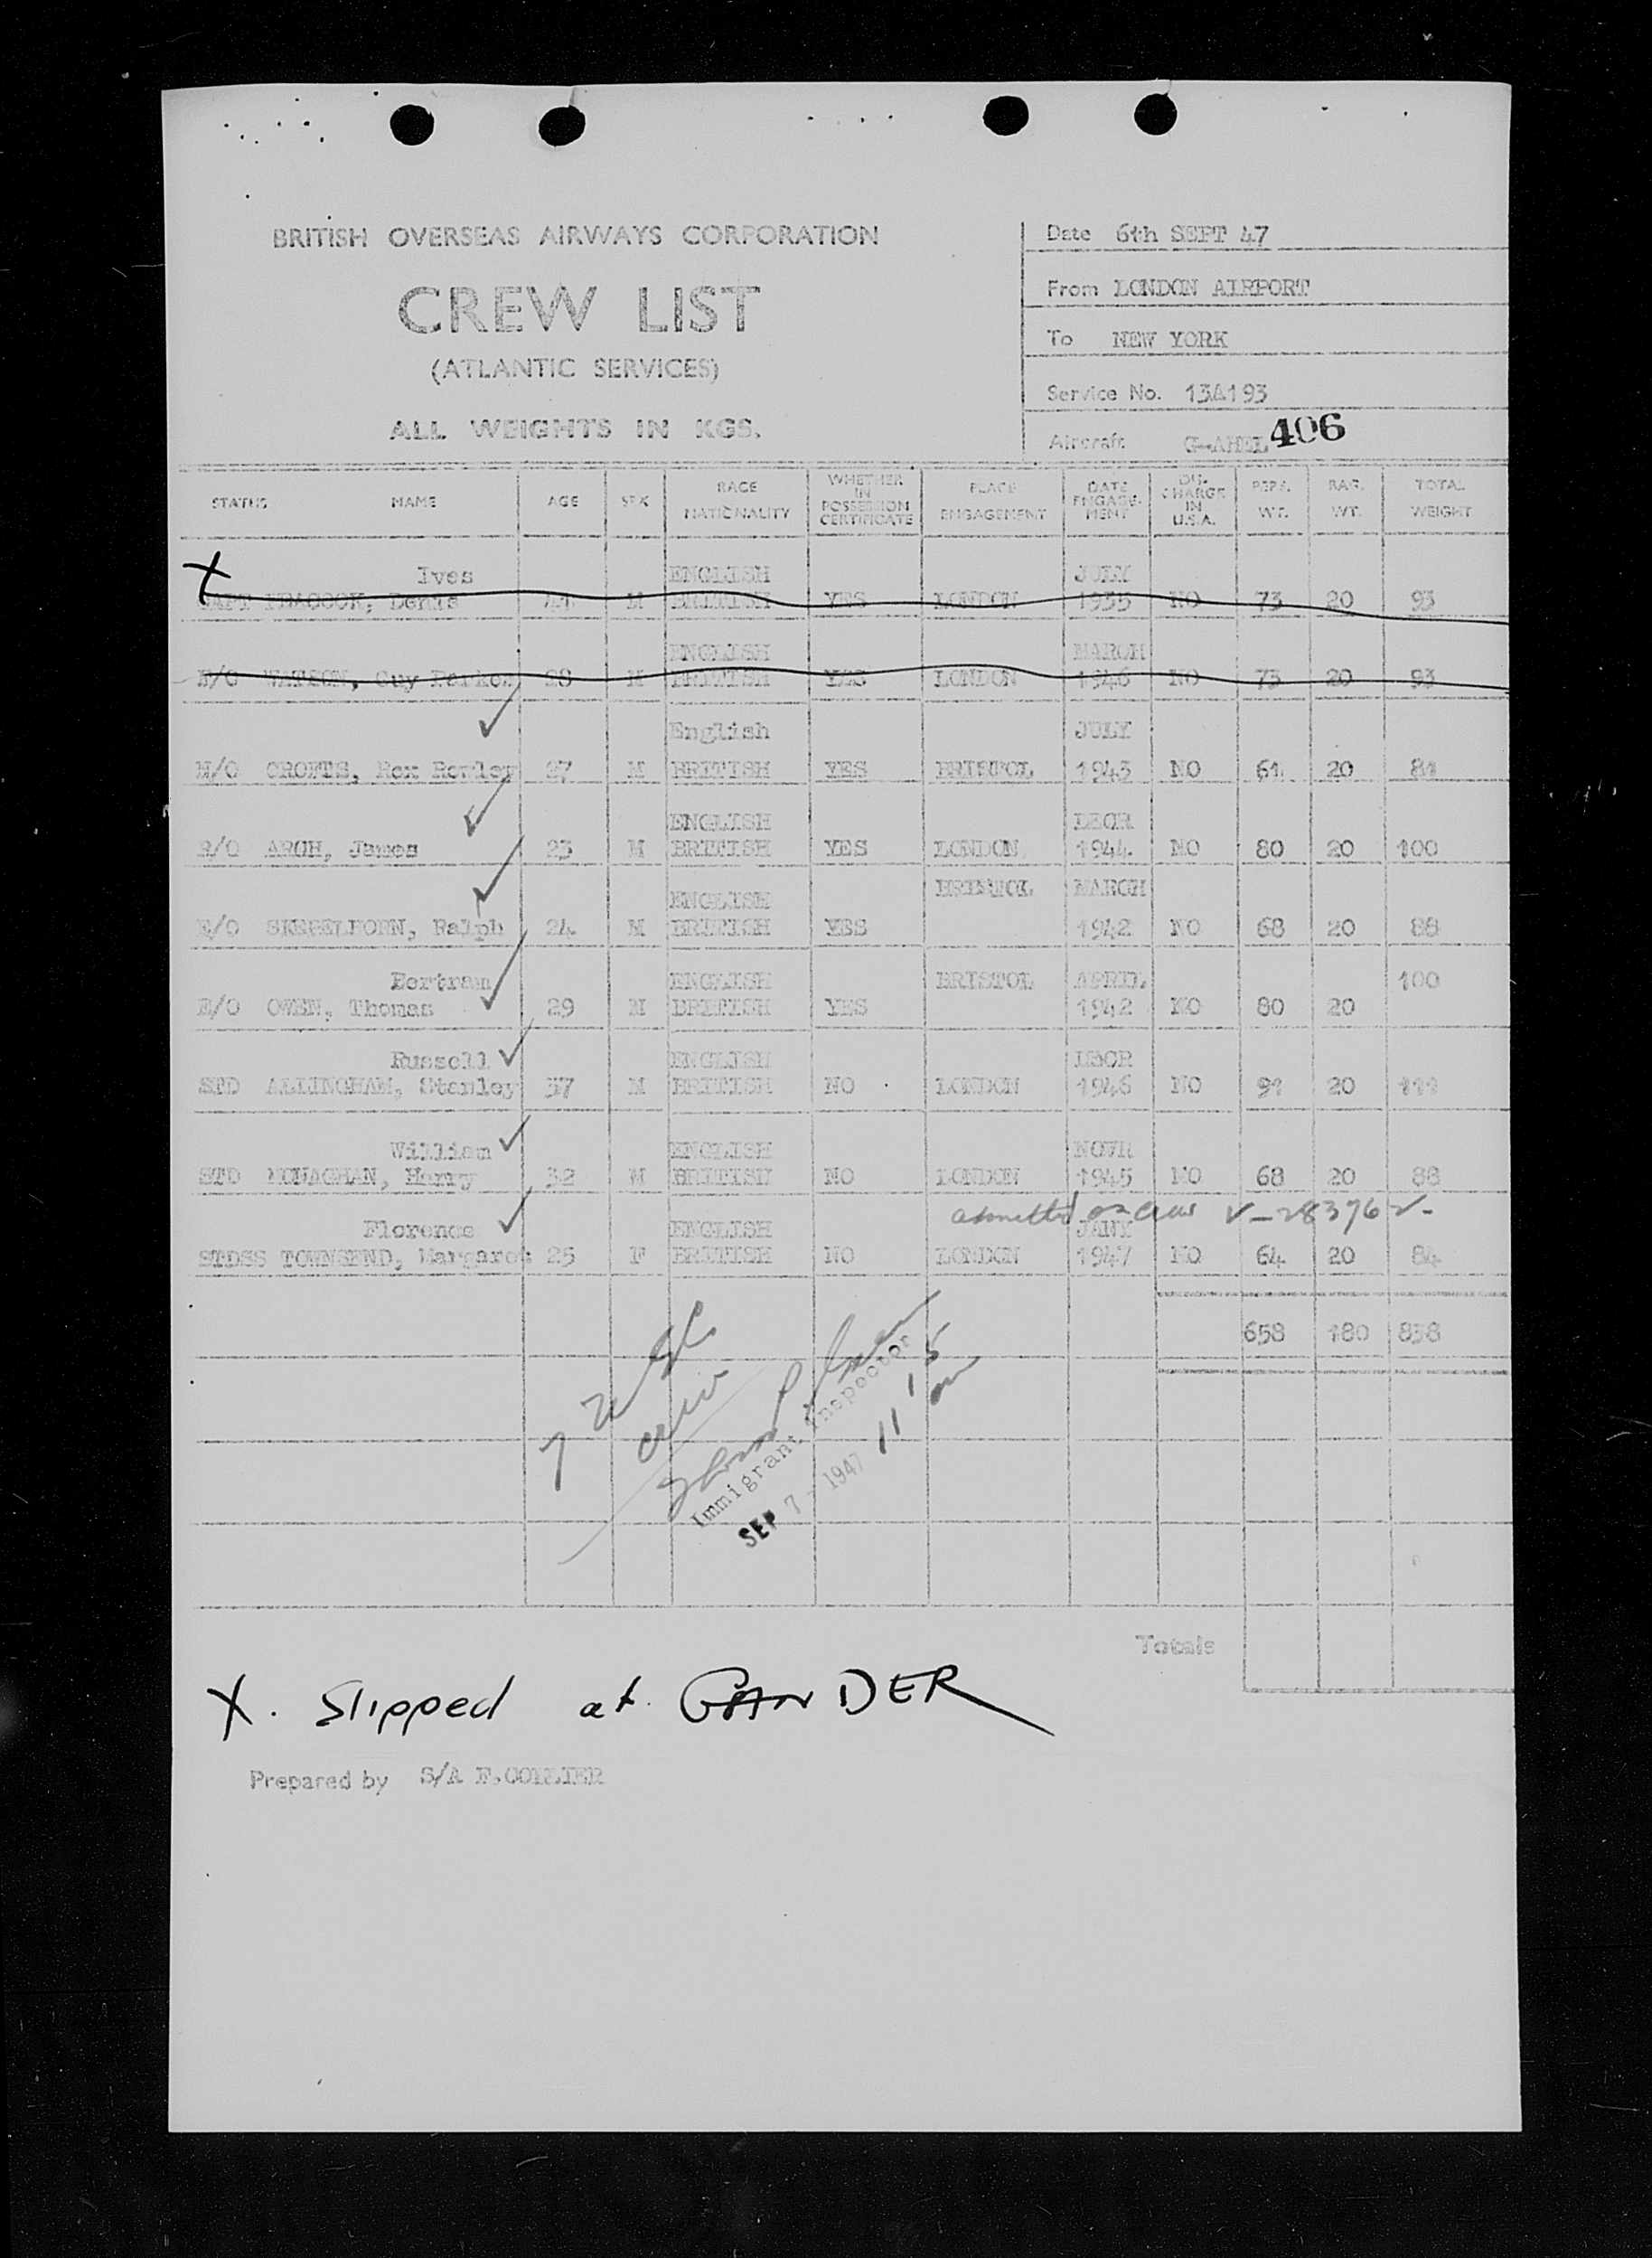 BRITISH OVERSEAS AIRWAYS CORPORATION
CREW LIST
(ATLANTIC SERVICES)
ALL WEIGHTS IN KGS.
Date 6th SEPT 47
From LONDON AIRPORT
To NEW YORK
Service No. 13A193
Aircraft G-AHEL 406
STATUS NAME AGE SEX RACE NATIONALITY WHETHER IN POSSESSION CERTIFICATE PLACE ENGAGEMENT DATE ENGAGE-MENT DIS-CHARGE IN U.S.A. PERS. WT. BAG. WT. TOTAL WEIGHT
X Ives ENGLISH JULY
CAPT PEACOCK, Denis M BRITISH YES LONDON 1935 NO 73 20 93
ENGLISH MARCH
WATSON, Guy Parker 28 M BRITISH YES LONDON 1946 NO 73 20 93
English JULY
N/O CROFTS, Rex Rowley 27 M BRITISH YES BRISTOL 1943 NO 61 20 81
ENGLISH DECR
R/O ARCH, James 23 M BRITISH YES LONDON 1944 NO 80 20 100
ENGLISH BRISTOL MARCH
Ralph 24 M BRITISH YES 1942 NO 68 20 88
Bertram ENGLISH BRISTOL APRIL 100
E/O OWEN, Thomas 29 M BRITISH YES 1942 NO 80 20
Russell ENGLISH DECR
STD ALLINGHAM, Stanley 37 M BRITISH NO LONDON 1946 NO 91 20 111
William ENGLISH NOVR
STD MONAGHAN, Harry 32 M BRITISH NO LONDON 1945 NO 68 20 88
admitted as crew V-283762-
Florence ENGLISH JANY
STDSS TOWNSEND, Margaret 25 F BRITISH NO LONDON 1947 NO 64 20 84
658 180 838
7
crew
Immigrant Inspector
SEP 7 - 1947
11 15
Totals
X. Slipped at. GANDER
Prepared by S/A F.COLLIER